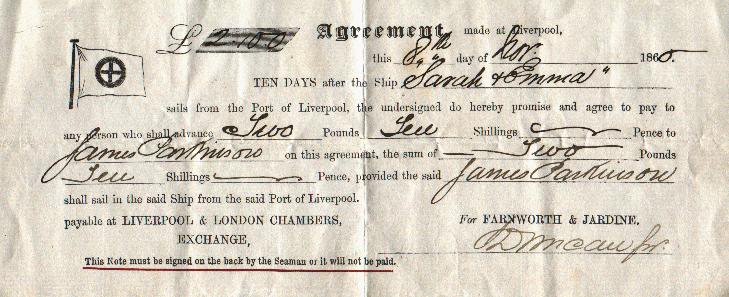 £ 2-10-0 Agreement, made at Liverpool,
this 8th day of Nov. 1860.
TEN DAYS after the Ship "Sarah & Emma"
sails from the Port of Liverpool, the undersigned do hereby promise and agree to pay to
any person who shall advance Two Pounds Ten Shillings Pence to
James Parkinson on this agreement, the sum of Two Pounds
Ten Shillings Pence, provided the said James Parkinson
shall sail in the said Ship from the said Port of Liverpool.
payable at LIVERPOOL & LONDON CHAMBERS, For FARNWORTH & JARDINE,
EXCHANGE, Duncan Jr.
This Note must be signed on the back by the Seaman or it will not be paid.